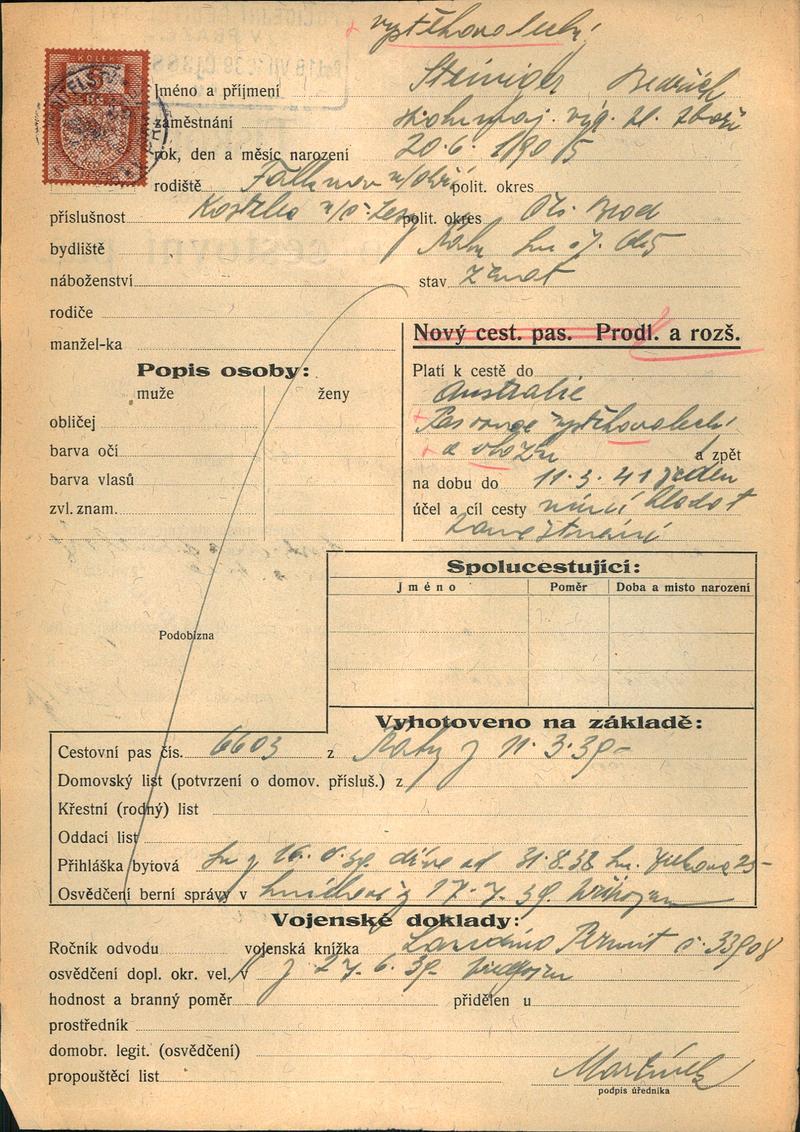 vystěhovalecký
KOLEK
Jméno a příjmení Steiniger Bedřich
zaměstnání
rok, den a měsíc narození 20.6.1905
rodiště Falknov n/Ohří polit. okres
příslušnost Kostelec n/Č. Lesy polit. okres Čes. Brod
bydliště
náboženství stav ženat
rodiče
manžel-ka
Nový cest. pas. Prodl. a rozš.
Popis osoby:
muže ženy
obličej
barva očí
barva vlasů
zvl. znam.
Platí k cestě do
Australie
vystěhovalecký
a zpět
na dobu do 11.3.41 jeden
účel a cíl cesty míní hledat
zaměstnání
Spolucestující:
Jméno Poměr Doba a místo narození
Podobizna
Vyhotoveno na základě:
Cestovní pas čís. 6603 z Prahy z 11.3.39
Domovský list (potvrzení o domov. přísluš.) z
Křestní (rodný) list
Oddací list
Přihláška bytová dříve od 31.8.38
Osvědčení berní správy v 17.7.39
Vojenské doklady:
Ročník odvodu vojenská knížka Landing Permit č. 33908
osvědčení dopl. okr. vel. V z 27.6.39
hodnost a branný poměr přidělen u
prostředník
domobr. legit. (osvědčení)
propouštěcí list Martínek
podpis úředníka